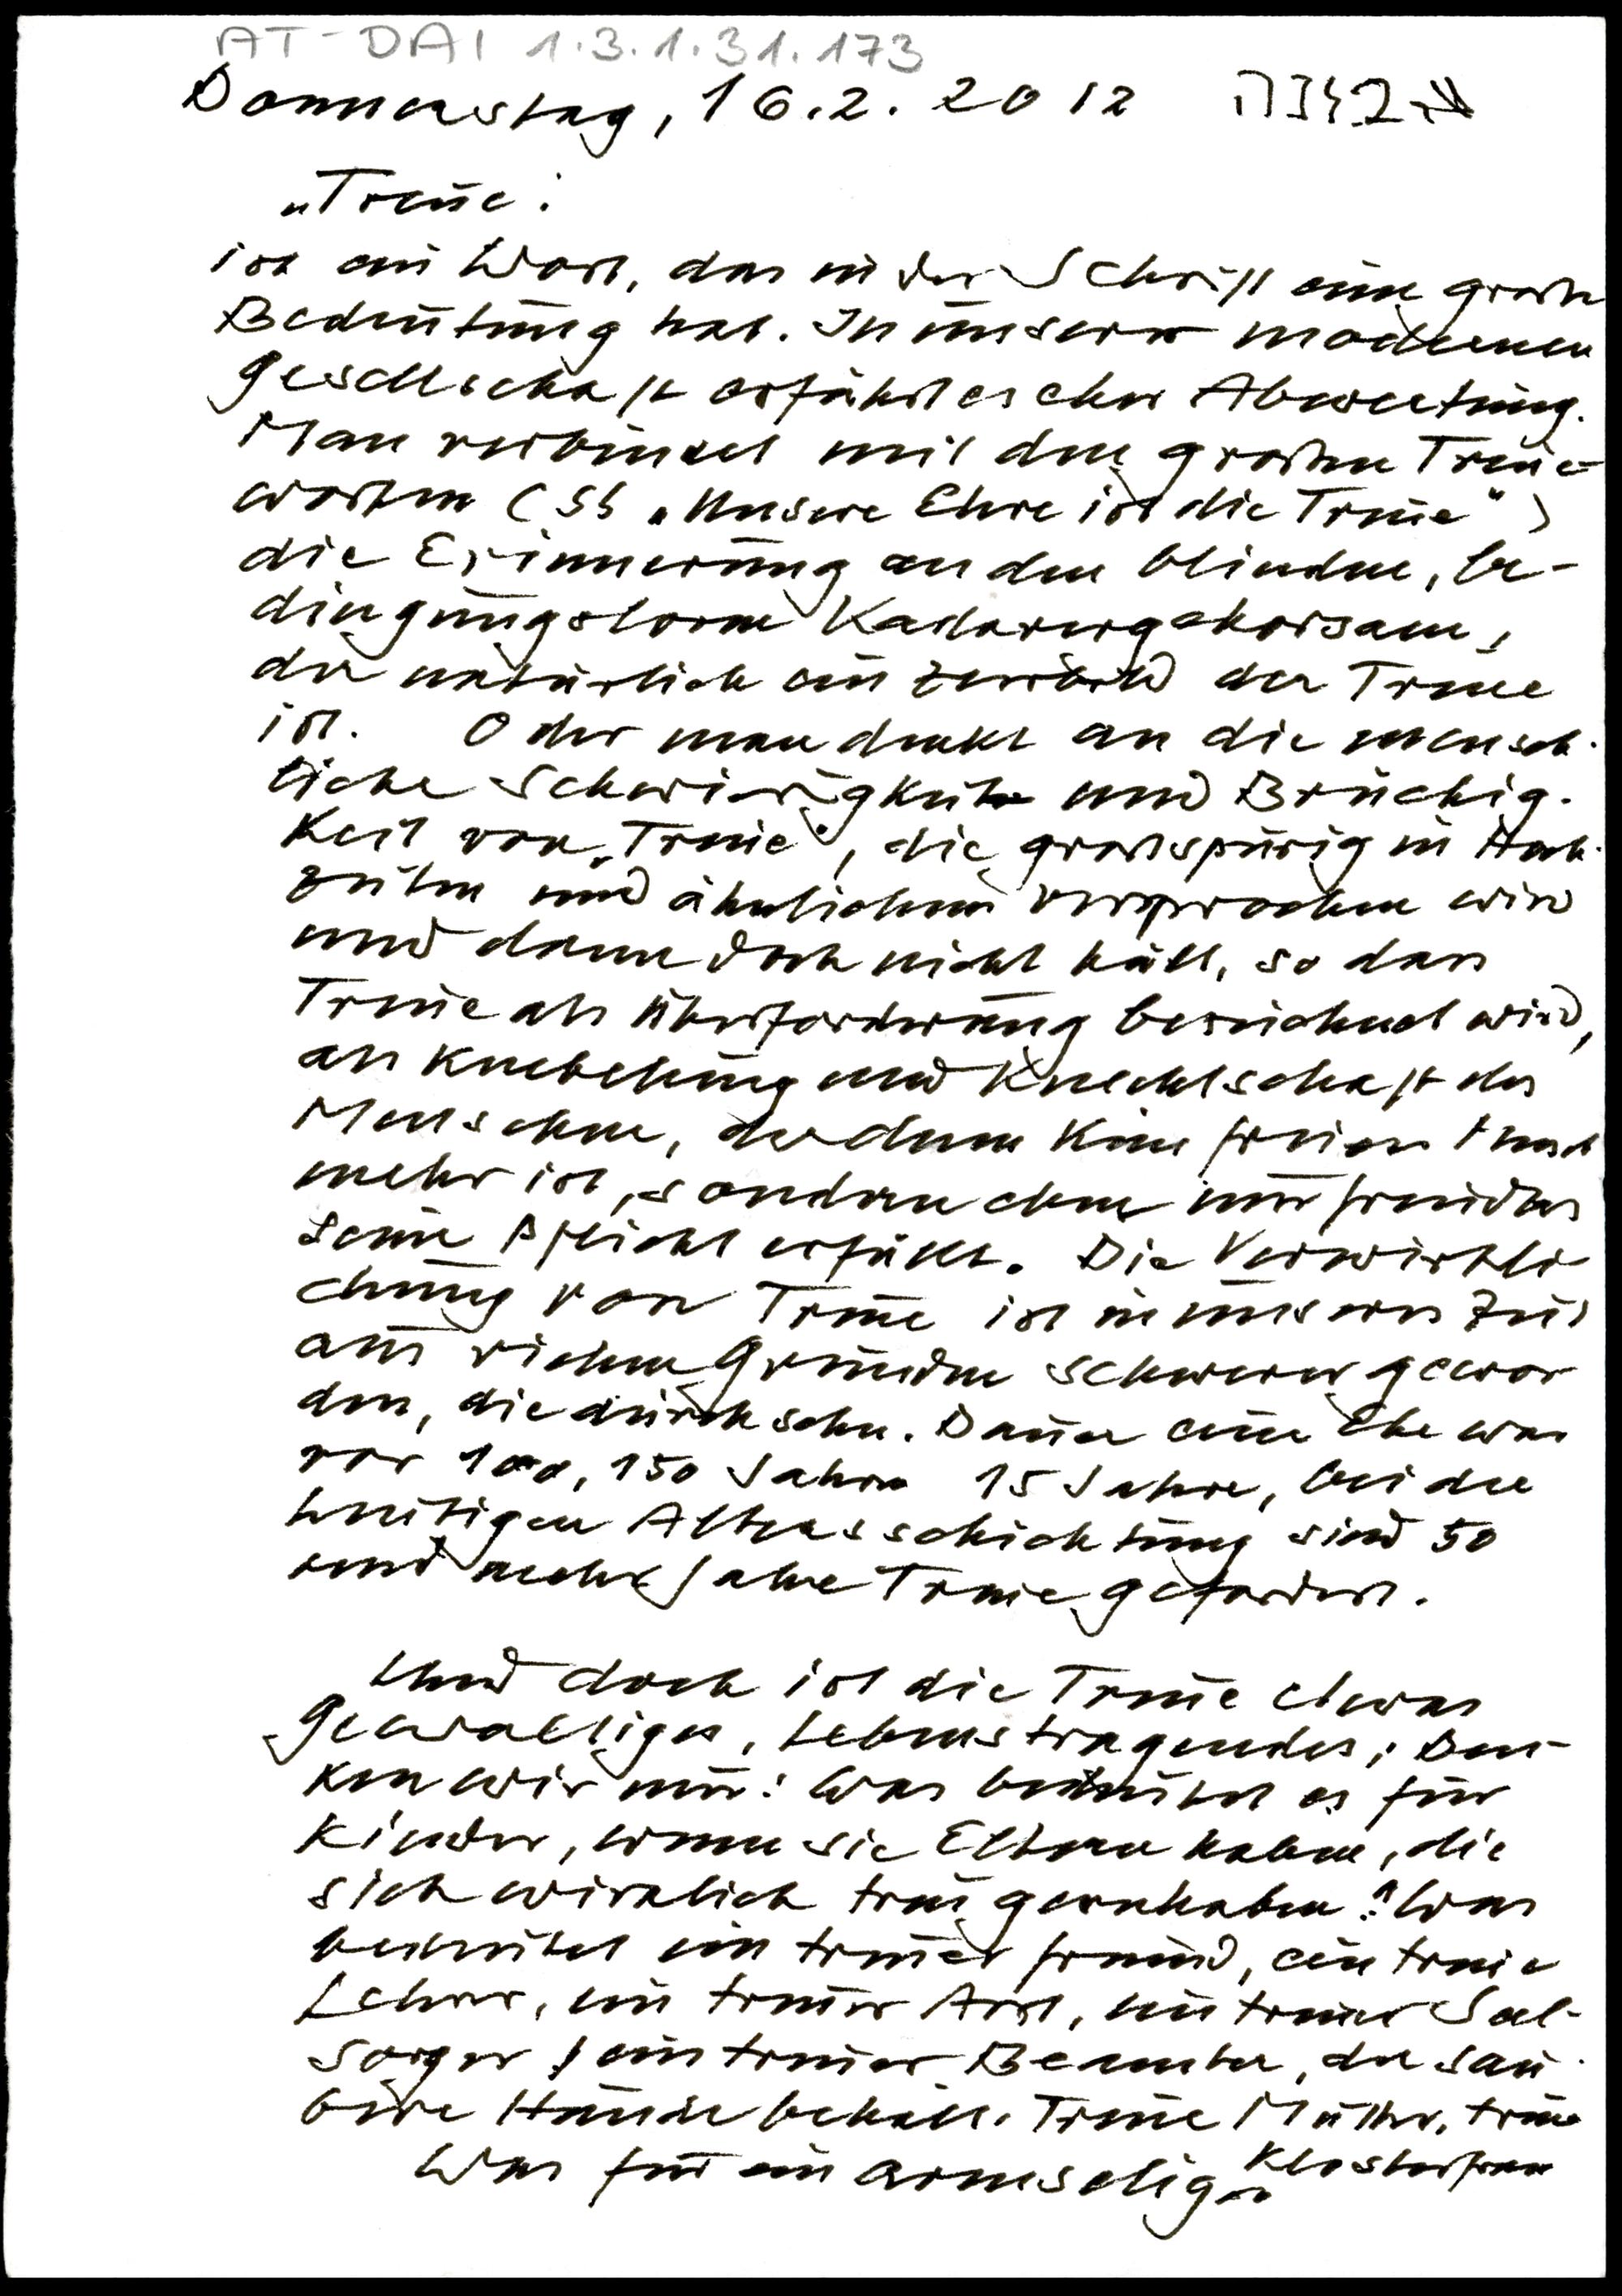 AT-DAI 1.3.1.31.173
Donnerstag, 16.2.2012
"Treue:
ist ein Wort, das in der Schrift eine große
Bedeutung hat. In unserer modernen
Gesellschaft erfährt es eher Abwertung.
Man verbindet mit den großen Treue-
worten (SS "Unsere Ehre ist die Treue")
die Erinnerung an den blinden, be-
dingungslosen Kadavergehorsam,
der natürlich ein Zerrbild der Treue
ist. Oder man denkt an die mensch-
liche Schwierigkeit und Brüchig-
keit von "Treue", die großspurig in Hoch-
zeiten und ähnlichem versprochen wird
und dann doch nicht hält, so dass
Treue als Überforderung bezeichnet wird,
als Knebelung und Knechtschaft des
Menschen, der dann kein freier Mensch
mehr ist, sondern eben nur freudlos
seine Pflicht erfüllt. Die Verwirkli-
chung von Treue ist in unserer Zeit
aus vielen Gründen schwerer gewor
den, die durchschn. Dauer einer Ehe war
vor 100, 150 Jahren 15 Jahre, bei der
heutigen Altersschichtung sind 50
und mehr Jahre Treue gefordert.
Und doch ist die Treue etwas
Gewaltiges, Lebenstragendes; Den-
ken wir nur: Was bedeutet es für
Kinder, wenn sie Eltern haben, die
sich wirklich treu gernhaben? Was
bedeutet ein treuer Freund, ein treuer
Lehrer, ein treuer Arzt, ein treuer Seel-
sorger, ein treuer Beamter, der sau-
bere Hände behält. Treue Mutter, treue
Klosterfrau
Was für ein armseliger